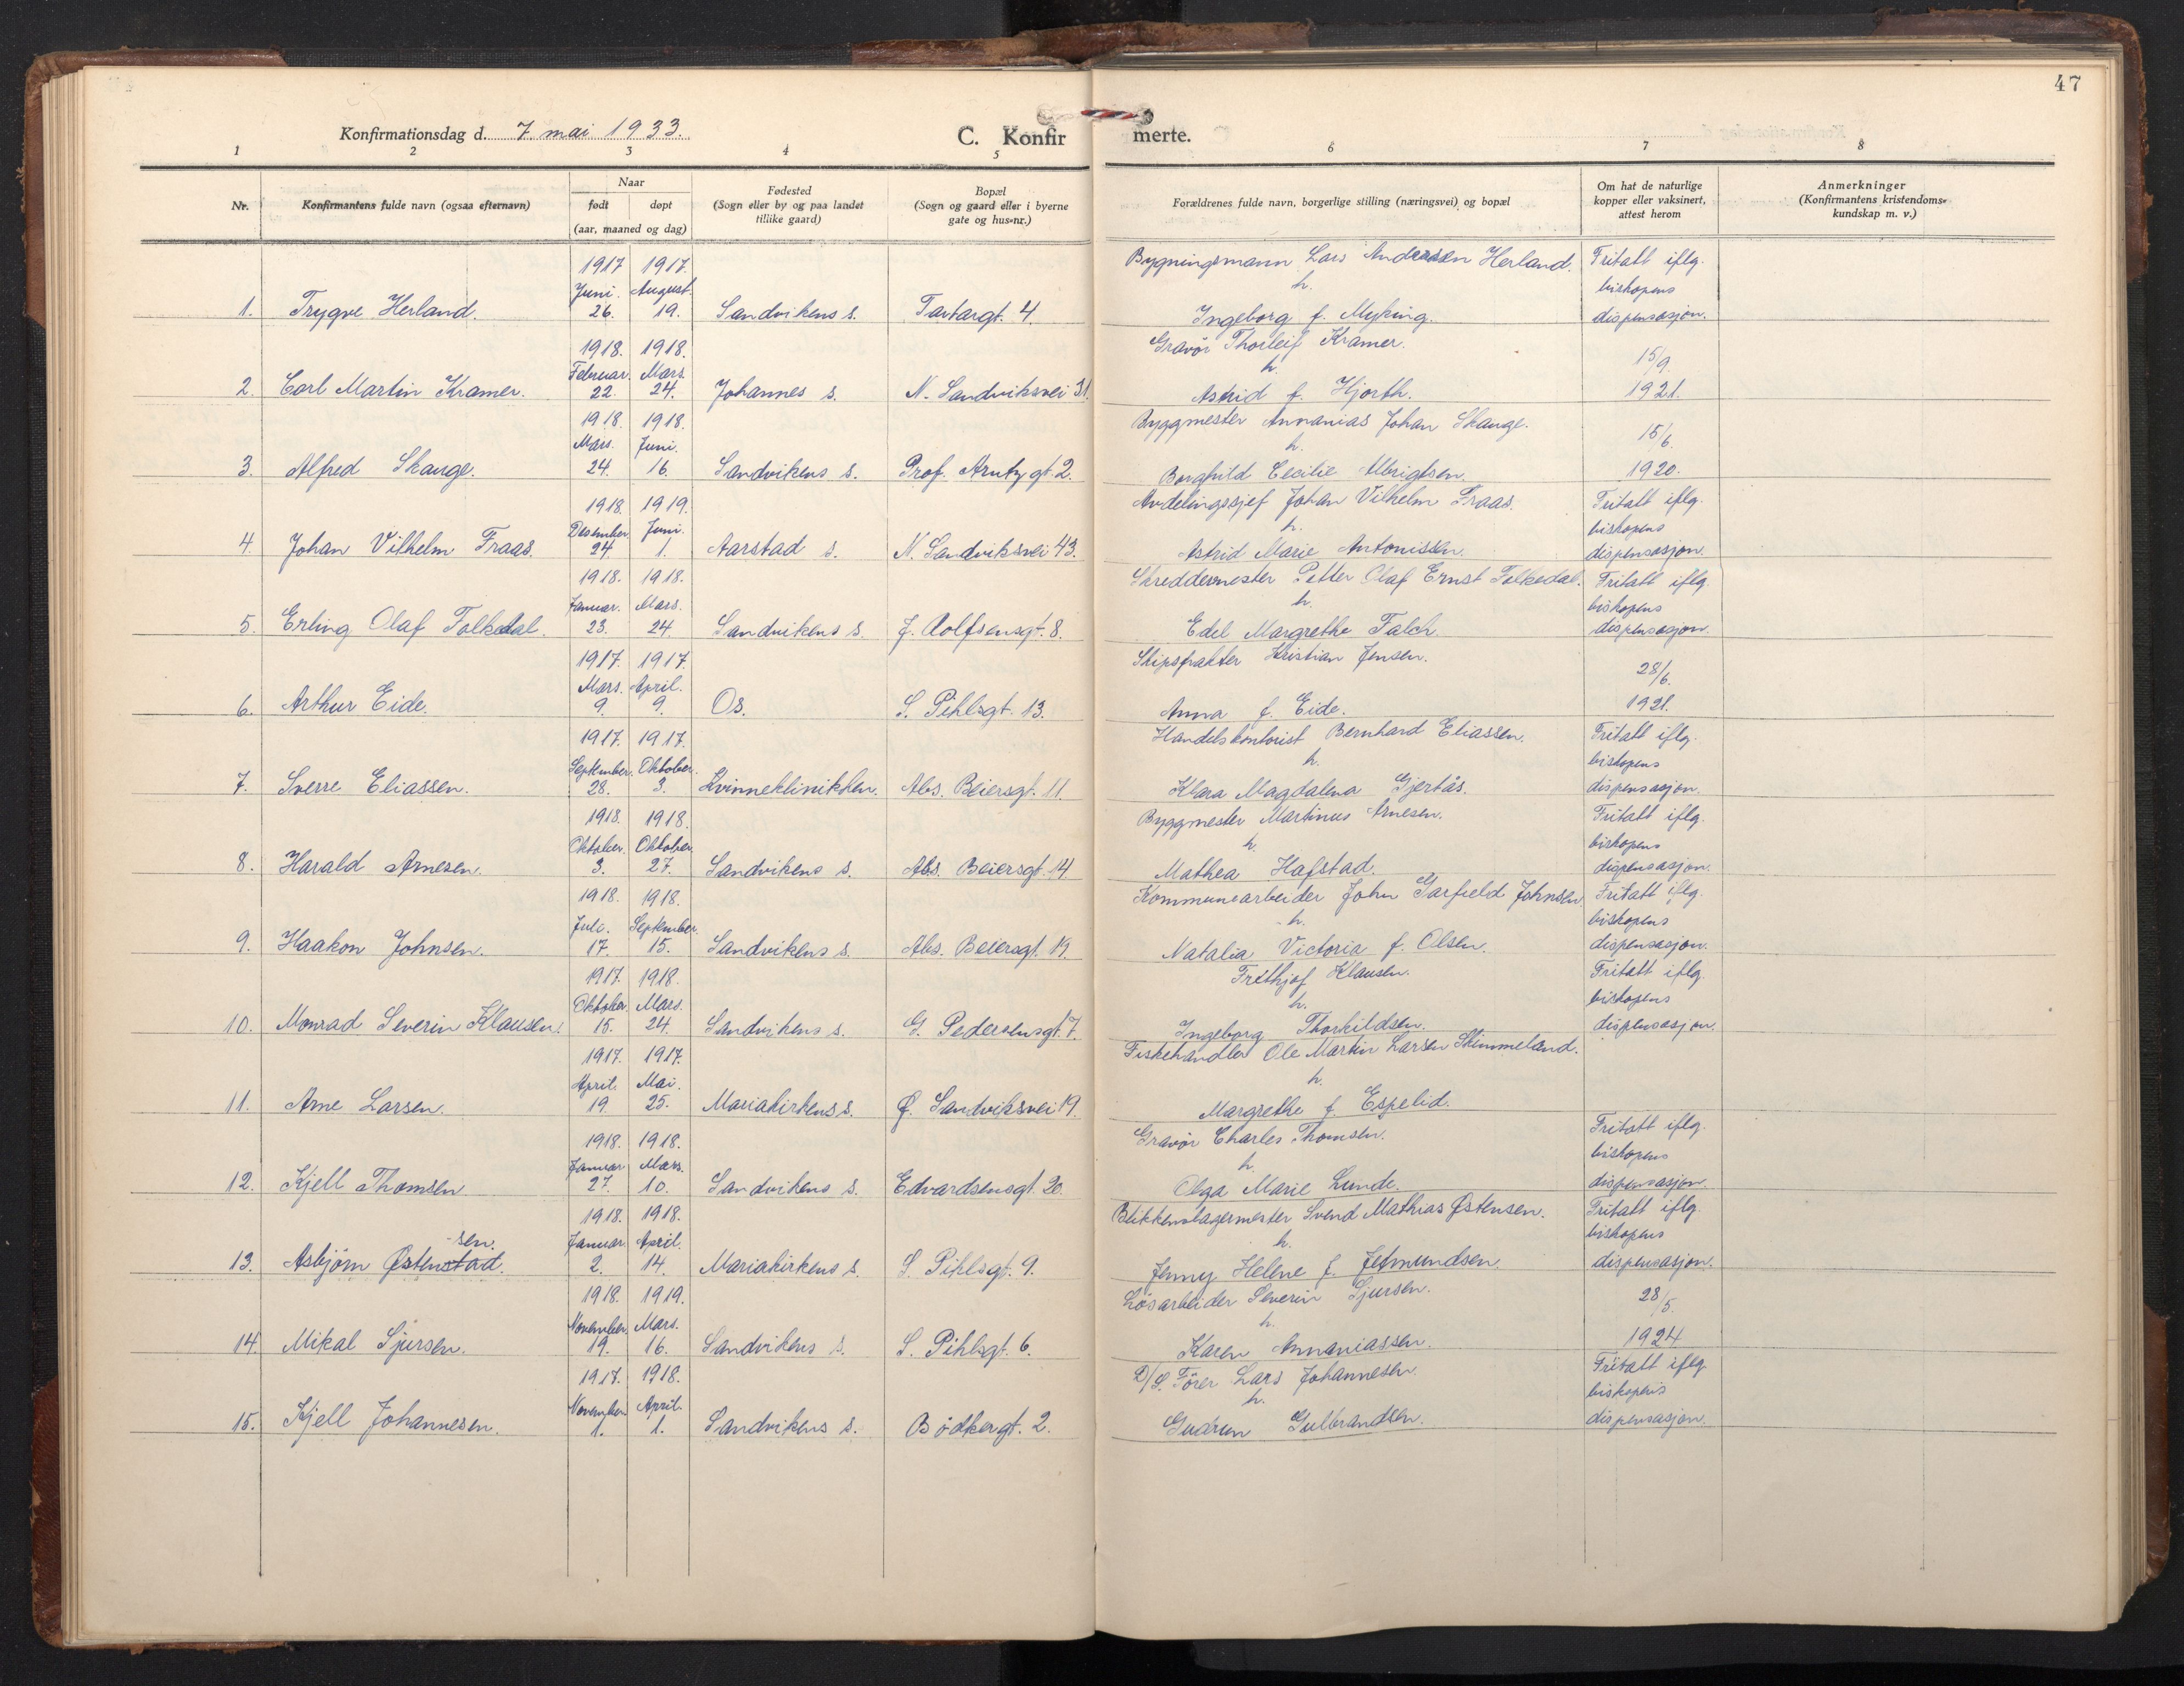 47
Konfirmationsdag d. 7. mai 1933.
C. Konfirmerte.
1 2 3 4 5 6 7 8
Nr.
Konfirmantens fulde navn (ogsaa efternavn)
Naar
født døpt
(aar, maaned og dag)
Fødested
(Sogn eller by og paa landet
tillike gaard)
Bopæl
(Sogn og gaard eller i byerne
gate og hus-nr.)
Forældrenes fulde navn, borgerlige stilling (næringsvei) og bopæl
Om hat de naturlige
kopper eller vaksinert,
attest herom
Anmerkninger
(Konfirmantens kristendoms-
kundskap m. v.)
1917 1917. Bygningsmann Lars Anderssen Herland. Fritatt iflg.
Juni. August. h. biskopens
1. Trygve Herland. 26. 19. Sandvikens s. Tartargt. 4. Ingeborg f. Myking. dispensasjon.
1918. 1918. Gravør Thorleif Kramer. 15/9.
Februar. Mars. h.
2. Carl Martin Kramer. 22. 24. Johannes s. N. Sandviksvei 31. Astrid f. Hjorth. 1921.
1918. 1918. Byggmester Annanias Johan Skauge. 15/6
Mars. Juni. h.
3. Alfred Skauge. 24. 16. Sandvikens s. Prof. Arntz gt. 2. Borghild Cecilie Albrigtsen. 1920.
1918. 1919. Avdelingssjef Johan Vilhelm Fraas. Fritatt iflg.
Desember. Juni. h. biskopens
4. Johan Vilhelm Fraas. 24 1. Aarstad s. N. Sandviksvei 43. Astrid Marie Antonissen. dispensasjon.
1918. 1918. Skreddermester Petter Olaf Ernst Folkedal. Fritatt iflg.
Januar. Mars. h. biskopens
5. Erling Olaf Folkedal. 23. 24. Sandvikens s. J. Rolfsensgt. 8. Edel Margrethe Falch. dispensasjon.
1917. 1917. Skipsfrakter Kristian Jensen. 28/6.
Mars. April.
6. Arthur Eide. 9. 9. Os. S. Pihlsgt. 13. Anna f. Eide. 1921.
1917. 1917. Handelskontorist Bernhard Eliassen. Fritatt iflg.
September. Oktober. h. biskopens
7. Sverre Eliassen. 28. 3. Kvinneklinikken. Abs. Beiersgt. 11. Klara Magdalena Gjertås. dispensasjon.
1918. 1918. Byggmester Martinus Arnesen. Fritatt iflg.
Oktober. Oktober. h. biskopens
8. Harald Arnesen. 3. 27. Sandvikens s. Abs. Beiersgt. 14. Mathea Hafstad. dispensasjon.
1918. 1918. Kommunearbeider John Garfield Johnsen. Fritatt iflg.
Juli. September. h. biskopens
9. Haakon Johnsen. 17. 15. Sandvikens s. Abs. Beiersgt. 19. Natalia Victoria f. Olsen. dispensasjon.
1917. 1918. Frithjof Klausen. Fritatt iflg.
Oktober. Mars. h. biskopens
10. Monrad Severin Klausen. 15. 24. Sandvikens s. G. Pedersensgt. 7. Ingeborg Thorkildsen. dispensasjon.
1917. 1917. Fiskehandler Ole Martin Larsen Skimmeland.
April. Mai. h.
11. Arne Larsen. 19. 25. Mariakirkens s. Ø. Sandviksvei 19. Margrethe f. Espelid.
1918. 1918. Gravør Charles Thomsen. Fritatt iflg.
Januar Mars. h. biskopens
12. Kjell Thomsen. 27. 10. Sandvikens s. Edvardsensgt. 20. Olga Marie Lunde. dispensasjon.
1918. 1918. Blikkenslagermester Svend Mathias Østensen. Fritatt iflg.
sen. Januar. April. h. biskopens
13. Asbjørn Østenstad. 2. 14. Mariakirkens s. S. Pihlsgt. 9. Jenny Helene f. Jetmundsen. dispensasjon.
1918. 1919. Løsarbeider Severin Sjursen. 28/5.
November. Mars. h.
14. Mikal Sjursen. 19. 16. Sandvikens s. S. Pihlsgt. 6. Karen Annaniassen. 1924
1917. 1918. D/S. Fører Lars Johannesen. Fritatt iflg
November. April. h. biskopens
15. Kjell Johannesen. 1. 1. Sandvikens s. Bødkergt. 2. Gudrun Gulbrandsen. dispensasjon.